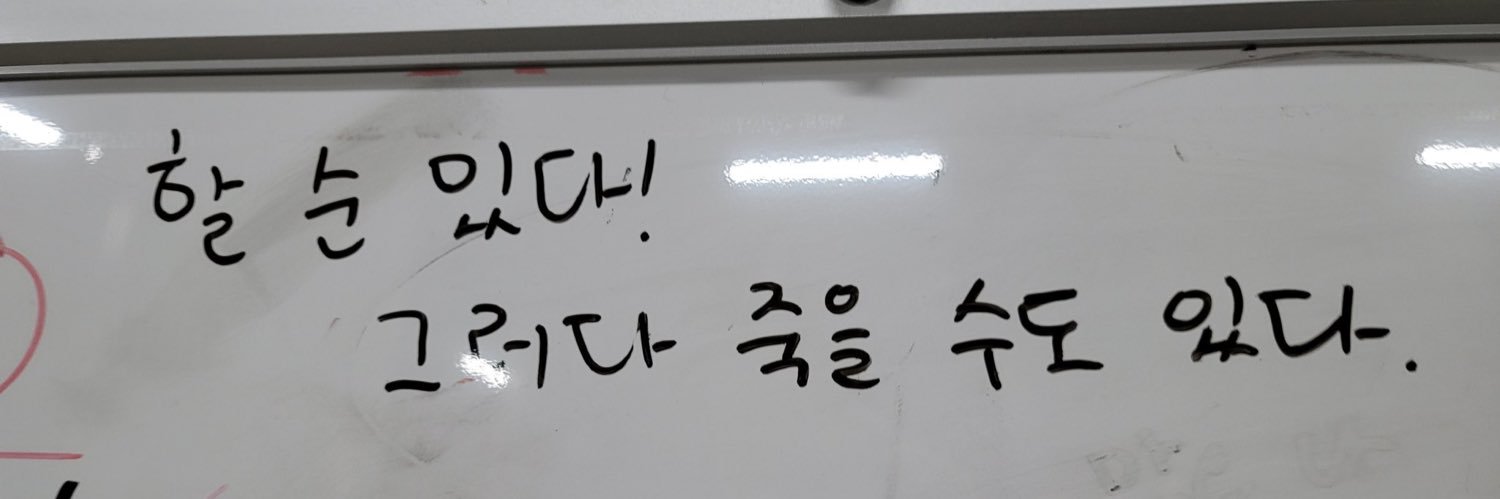 할 순 있다!
그러다 죽을 수도 있다.